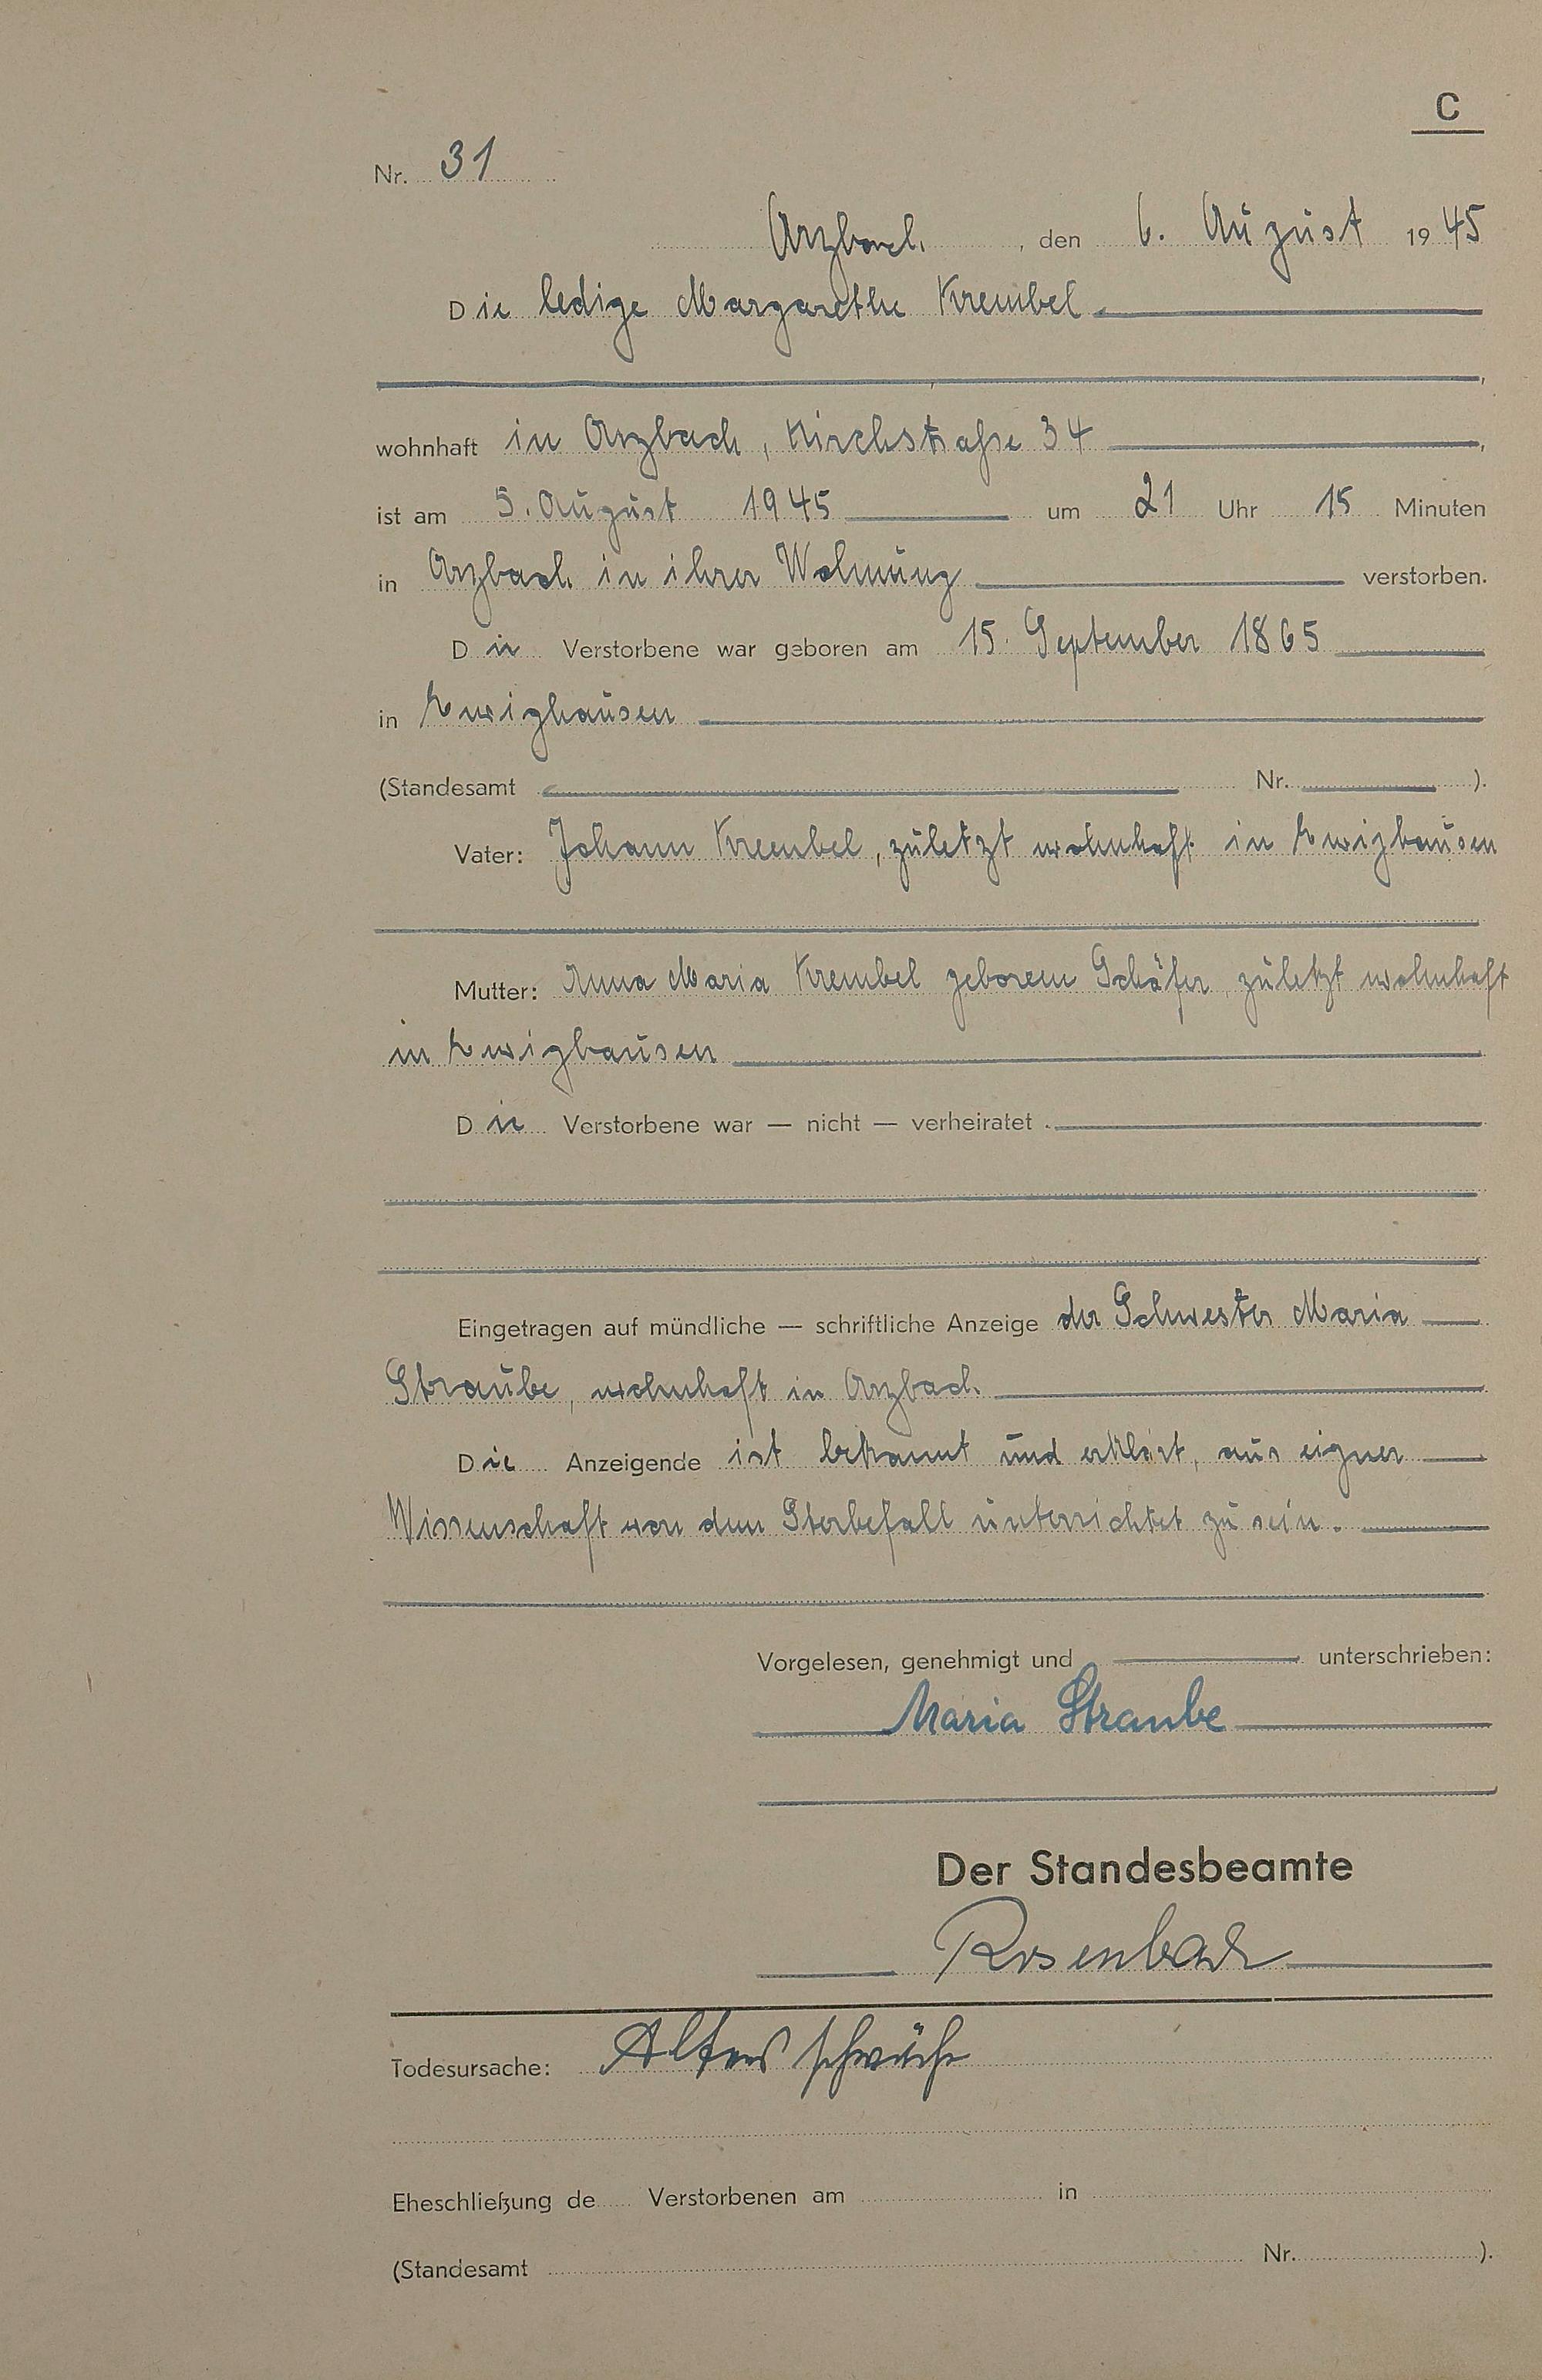 C
Nr. 31
Arzbach, den 6. August 1945
Die ledige Margarethe Krembel
wohnhaft in Arzbach, Kirchstraße 34,
ist am 5. August 1945 um 21 Uhr 15 Minuten
in Arzbach in ihrer Wohnung verstorben.
Die Verstorbene war geboren am 15. September 1865
in Ewighausen
(Standesamt Nr. ).
Vater: Johann Krembel, zuletzt wohnhaft in Ewighausen
Mutter: Anna Maria Krembel geborene Schäfer, zuletzt wohnhaft
in Ewighausen
Die Verstorbene war — nicht — verheiratet
Eingetragen auf mündliche — schriftliche Anzeige der Schwester Maria
Straube, wohnhaft in Arzbach.
Die Anzeigende ist bekannt und erklärt, aus eigner
Wissenschaft von dem Sterbefall unterrichtet zu sein.
Vorgelesen, genehmigt und unterschrieben:
Maria Straube
Der Standesbeamte
Rosenbach
Todesursache: Altersschwäche
Eheschließung de Verstorbenen am in
(Standesamt Nr. ).